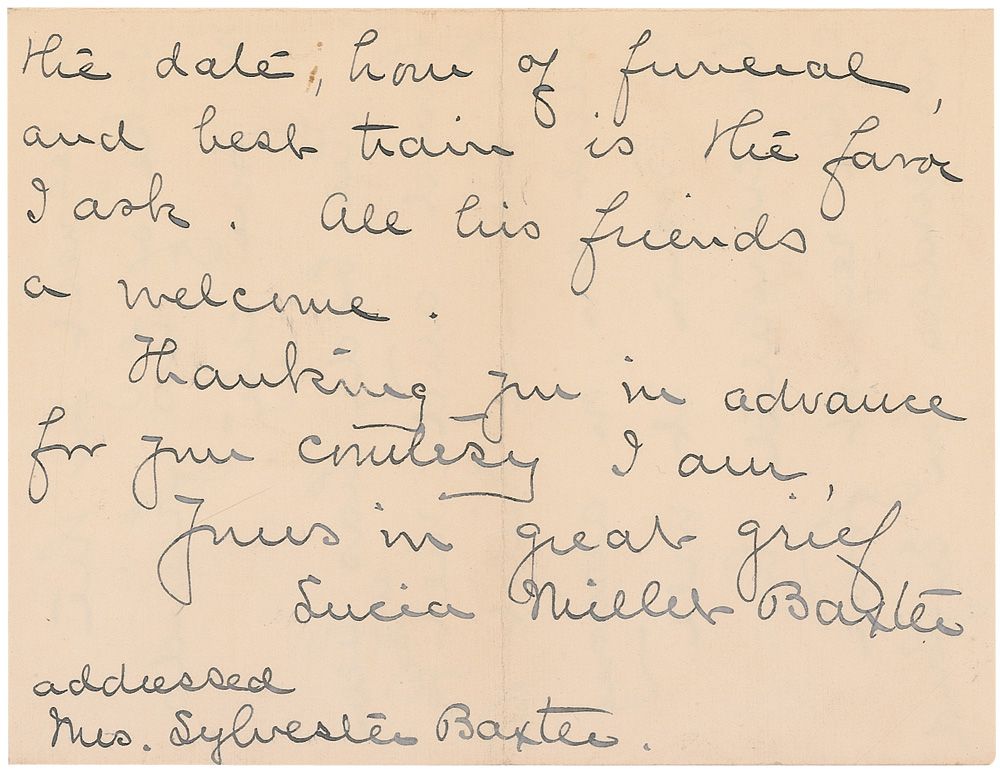 the date, hour of funeral,
and best train is the favor
I ask. All his friends
a welcome.
Thanking you in advance
for your courtesy I am,
Yours in great grief
Lucia Millet Baxter
addressed
Mrs. Sylvester Baxter.